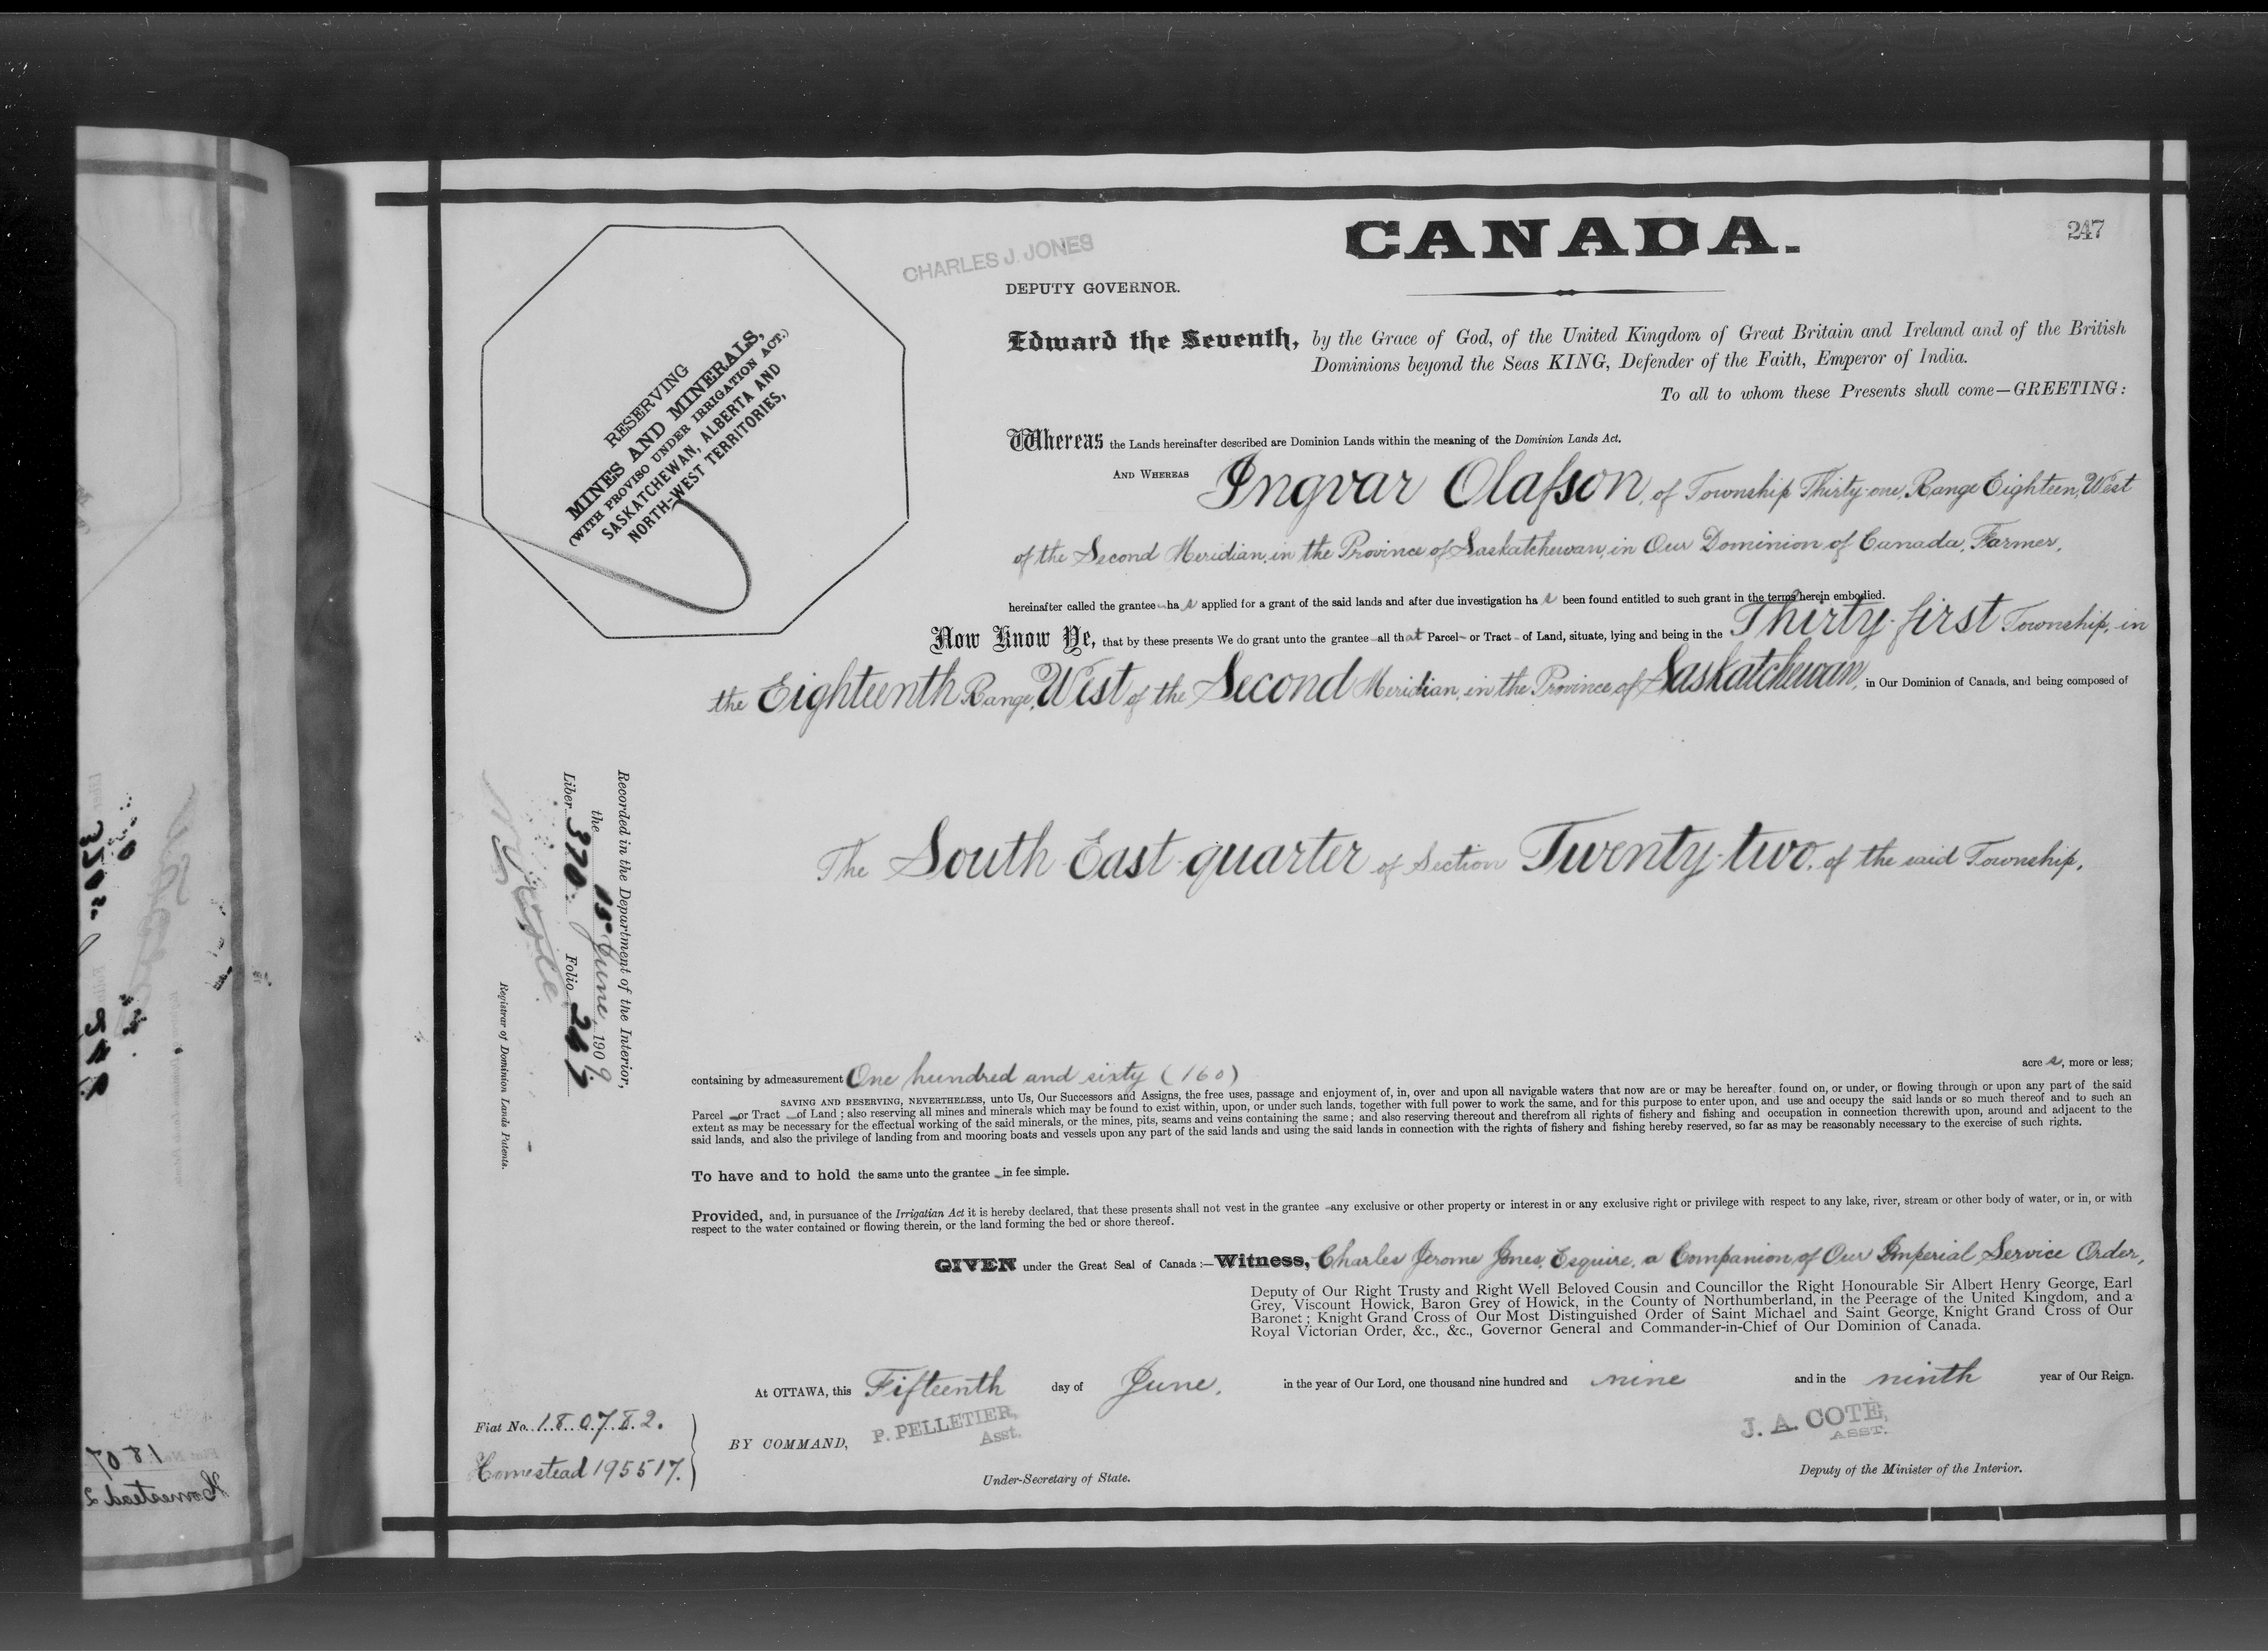 CANADA.
247
CHARLES J. JONES
DEPUTY GOVERNOR.
RESERVING
MINES AND MINERALS,
(WITH PROVISO UNDER IRRIGATION ACT.)
SASKATCHEWAN, ALBERTA AND
NORTH-WEST TERRITORIES,
Edward the Seventh, by the Grace of God, of the United Kingdom of Great Britain and Ireland and of the British
Dominions beyond the Seas KING, Defender of the Faith, Emperor of India.
To all to whom these Presents shall come—GREETING:
Whereas the Lands hereinafter described are Dominion Lands within the meaning of the Dominion Lands Act.
AND WHEREAS Ingvar Olafson, of Township Thirty-one, Range Eighteen, West
of the Second Meridian, in the Province of Saskatchewan, in Our Dominion of Canada, Farmer,
hereinafter called the grantee - has applied for a grant of the said lands and after due investigation has been found entitled to such grant in the terms herein embodied.
Now Know Ye, that by these presents We do grant unto the grantee - all that Parcel - or Tract - of Land, situate, lying and being in the Thirty-first Township, in
the Eighteenth Range, West of the Second Meridian, in the Province of Saskatchewan, in Our Dominion of Canada, and being composed of
The South East quarter of Section Twenty-two, of the said Township,
Recorded in the Department of the Interior,
the 15 June, 1909
Liber 370 Folio 247
Registrar of Dominion Lands Patents.
containing by admeasurement One hundred and sixty (160) acres, more or less;
SAVING AND RESERVING, NEVERTHELESS, unto Us, Our Successors and Assigns, the free uses, passage and enjoyment of, in, over and upon all navigable waters that now are or may be hereafter found on, or under, or flowing through or upon any part of the said
Parcel - or Tract - of Land; also reserving all mines and minerals which may be found to exist within, upon, or under such lands, together with full power to work the same, and for this purpose to enter upon, and use and occupy the said lands or so much thereof and to such an
extent as may be necessary for the effectual working of the said minerals, or the mines, pits, seams and veins containing the same; and also reserving thereout and therefrom all rights of fishery and fishing and occupation in connection therewith upon, around and adjacent to the
said lands, and also the privilege of landing from and mooring boats and vessels upon any part of the said lands and using the said lands in connection with the rights of fishery and fishing hereby reserved, so far as may be reasonably necessary to the exercise of such rights.
To have and to hold the same unto the grantee - in fee simple.
Provided, and, in pursuance of the Irrigatian Act it is hereby declared, that these presents shall not vest in the grantee - any exclusive or other property or interest in or any exclusive right or privilege with respect to any lake, river, stream or other body of water, or in, or with
respect to the water contained or flowing therein, or the land forming the bed or shore thereof.
GIVEN under the Great Seal of Canada:—Witness, Charles Jerome Jones, Esquire, a Companion of Our Imperial Service Order,
Deputy of Our Right Trusty and Right Well Beloved Cousin and Councillor the Right Honourable Sir Albert Henry George, Earl
Grey, Viscount Howick, Baron Grey of Howick, in the County of Northumberland, in the Peerage of the United Kingdom, and a
Baronet; Knight Grand Cross of Our Most Distinguished Order of Saint Michael and Saint George, Knight Grand Cross of Our
Royal Victorian Order, &c., &c., Governor General and Commander-in-Chief of Our Dominion of Canada.
At OTTAWA, this Fifteenth day of June, in the year of Our Lord, one thousand nine hundred and nine and in the ninth year of Our Reign.
Fiat No. 180782.
Homestead 195517.
BY COMMAND,
P. PELLETIER,
Asst.
Under-Secretary of State.
J. A. COTE,
ASST.
Deputy of the Minister of the Interior.